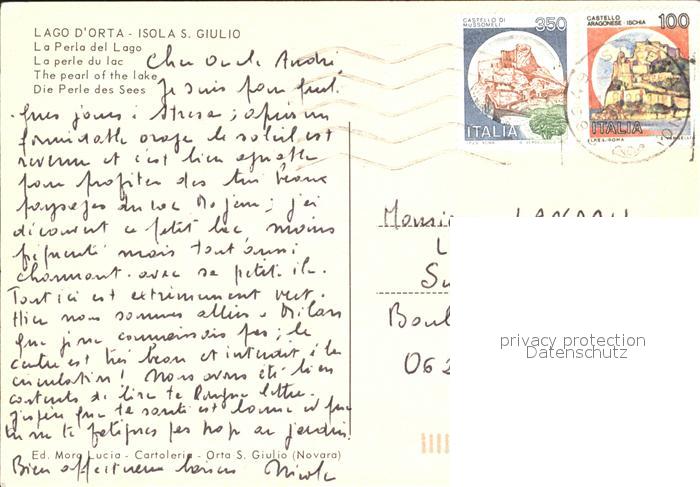 LAGO D'ORTA - ISOLA S. GIULIO
La Perla del Lago
La perle du lac
The pearl of the lake
Die Perle des Sees
Cher Oncle André
Je suis pour quel.
ques jours à Stresa ; après un
formidable orage le soleil est
revenu et c'est bien agréable
pour profiter des très beaux
paysages du Lac Majeur ; j'ai
découvert ce petit lac moins
fréquenté mais tout aussi
charmant avec sa petite île.
Tout ici est extrêmement vert.
Hier nous sommes allés à Milan
que je ne connaissais pas ; le
centre est très beau et interdit à la
circulation ! Nous avons été bien
contents de lire ta longue lettre.
J'espère que ta santé est bonne et que
tu ne te fatigues pas trop au jardin.
Ed. Mora Lucia - Cartoleria - Orta S. Giulio (Novara)
Bien affectueux baisers Nicole
CASTELLO DI MUSSOMELI 350
ITALIA
CASTELLO ARAGONESE - ISCHIA 100
ITALIA
Monsieur
L
Su
Boul
062
privacy protection
Datenschutz